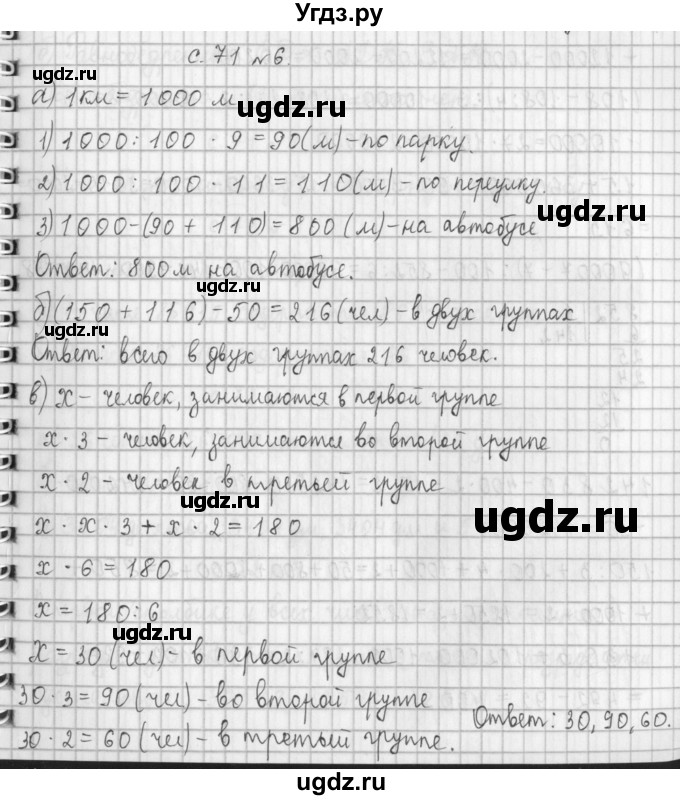 Угдз.ру
с. 71 №6.
ugdz.ru
а) 1 км = 1000 м
ugdz.ru
1) 1000 : 100 · 9 = 90 (м) - по парку.
ugdz.ru
2) 1000 : 100 · 11 = 110 (м) - по переулку.
ugdz.ru
3) 1000 - (90 + 110) = 800 (м) - на автобусе
Ответ: 800 м на автобусе.
ugdz.ru
б) (150 + 116) - 50 = 216 (чел) - в двух группах
ugdz.ru
ugdz.ru
Ответ: всего в двух группах 216 человек.
ugdz.ru
в) x - человек, занимаются в первой группе
x · 3 - человек, занимаются во второй группе
ugdz.ru
x · 2 - человек в третьей группе
ugdz.ru
ugdz.ru
x · x · 3 + x · 2 = 180
x · 6 = 180
x = 180 : 6
ugdz.ru
x = 30 (чел) - в первой группе
30 · 3 = 90 (чел) - во второй группе
Ответ: 30, 90, 60.
30 · 2 = 60 (чел) - в третьей группе.
ugdz.ru
ugdz.ru